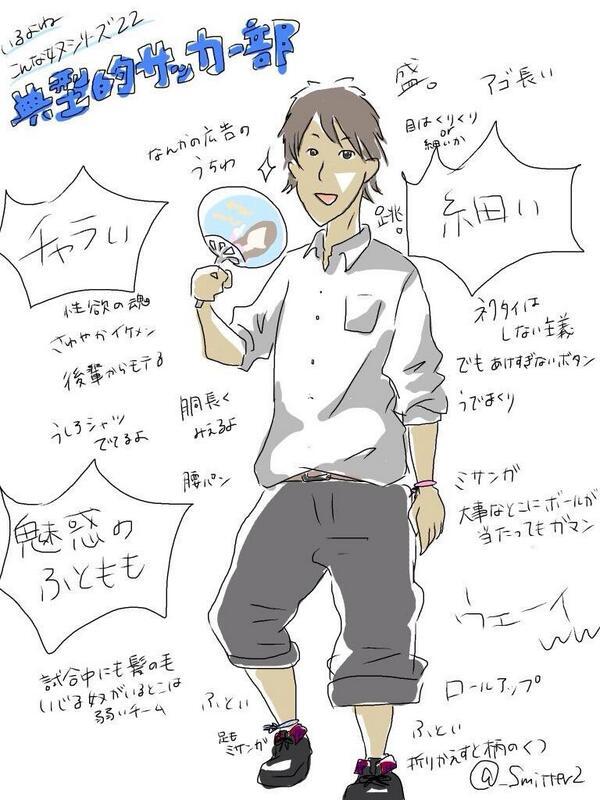 いるよね
こんな奴シリーズ22
典型的サッカー部
盛。
アゴ長い
目はくりくり
or
細いか
なんかの広告の
うちわ
チャラい
跳。
細い
性欲の魂
さわやかイケメン
後輩からモテる
ネクタイは
しない主義
でもあけすぎないボタン
うでまくり
うしろシャツ
でてるよ
胴長く
みえるよ
腰パン
ミサンガ
大事なとこにボールが
当たってもガマン
魅惑の
ふともも
ウェーイ
ww
試合中にも髪の毛
いじる奴がいるとこは
弱いチーム
ふとい
足も
ミサンガ
ロールアップ
ふとい
折りかえすと柄のくつ
@_Smitter2